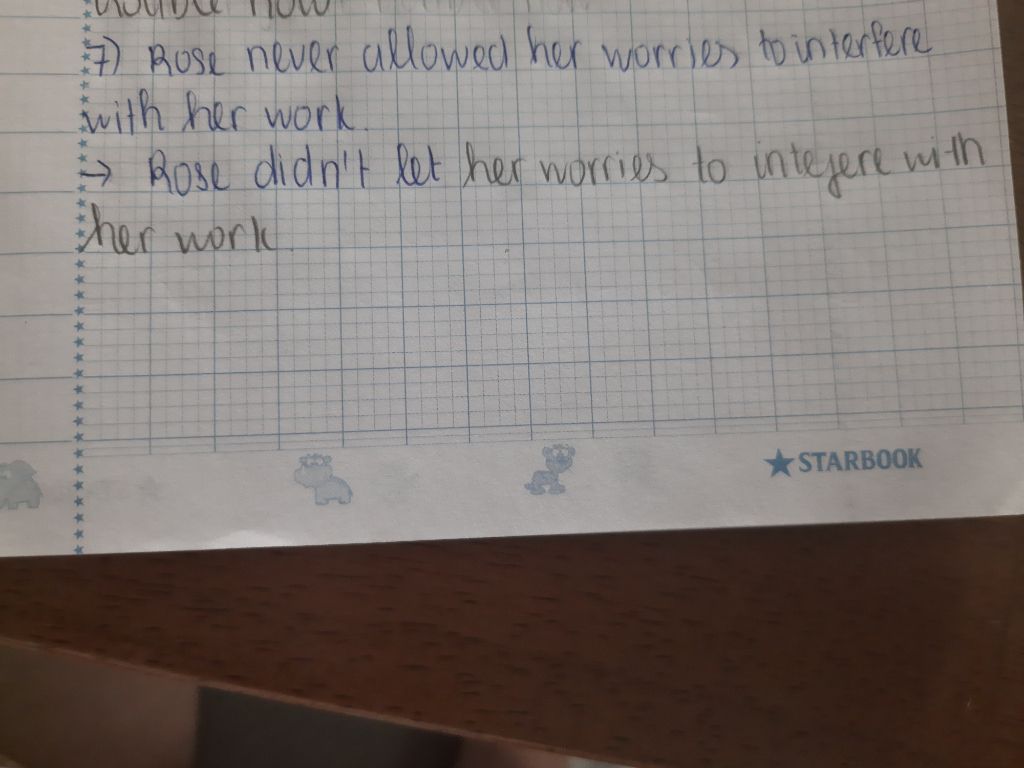 7) Rose never allowed her worries to interfere
with her work.
→ Rose didn't let her worries to intefere with
her work
STARBOOK